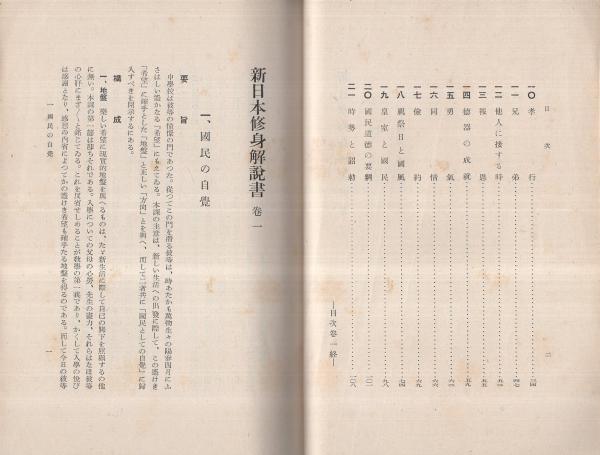 目次
二
一〇 孝行 三四
一一 兄弟 四七
一二 他人に接する時 五一
一三 報恩 五五
一四 德器の成就 五九
一五 勇氣 六二
一六 同情 六六
一七 儉約 六九
一八 氏祭日と國風 七四
一九 皇室と國民 九八
二〇 國民道德の要綱 一〇二
二一 時勢と詔勅 一〇八
―目次卷一終―
新日本修身解說書 卷一
一、國民の自覺
要旨
中學校は彼等の憧憬の門であつた。從つてこの門を潛る彼等は、時あたかも萬物生々の陽春四月にふ
さはしい遙かなる「希望」にもえてゐる。本課の主意は、新しい生活への出發に際して、この遙けき
「希望」に確乎とした「地盤」と正しい「方向」とを與へ、而して二者共に「國民としての自覺」に歸
入すべきを開示するにある。
構成
一、地盤 樂しい希望に現實的地盤を與へるものは、たゞ新生活に際して自己の脚下を照顧するの他
に無い。本課の第一節は卽ちそれである。入學についての父母の心勞、先生の盡力、それらはなほ彼等
の心肝にまざ〳〵と銘じてゐる。これを反省せしめることが敎學の第一義であり、かくして入學の悅び
は感謝となり、感恩の內省によつてかの遙けき希望も確乎たる地盤を得るのである。而して今日の彼等
一 國民の自覺
一